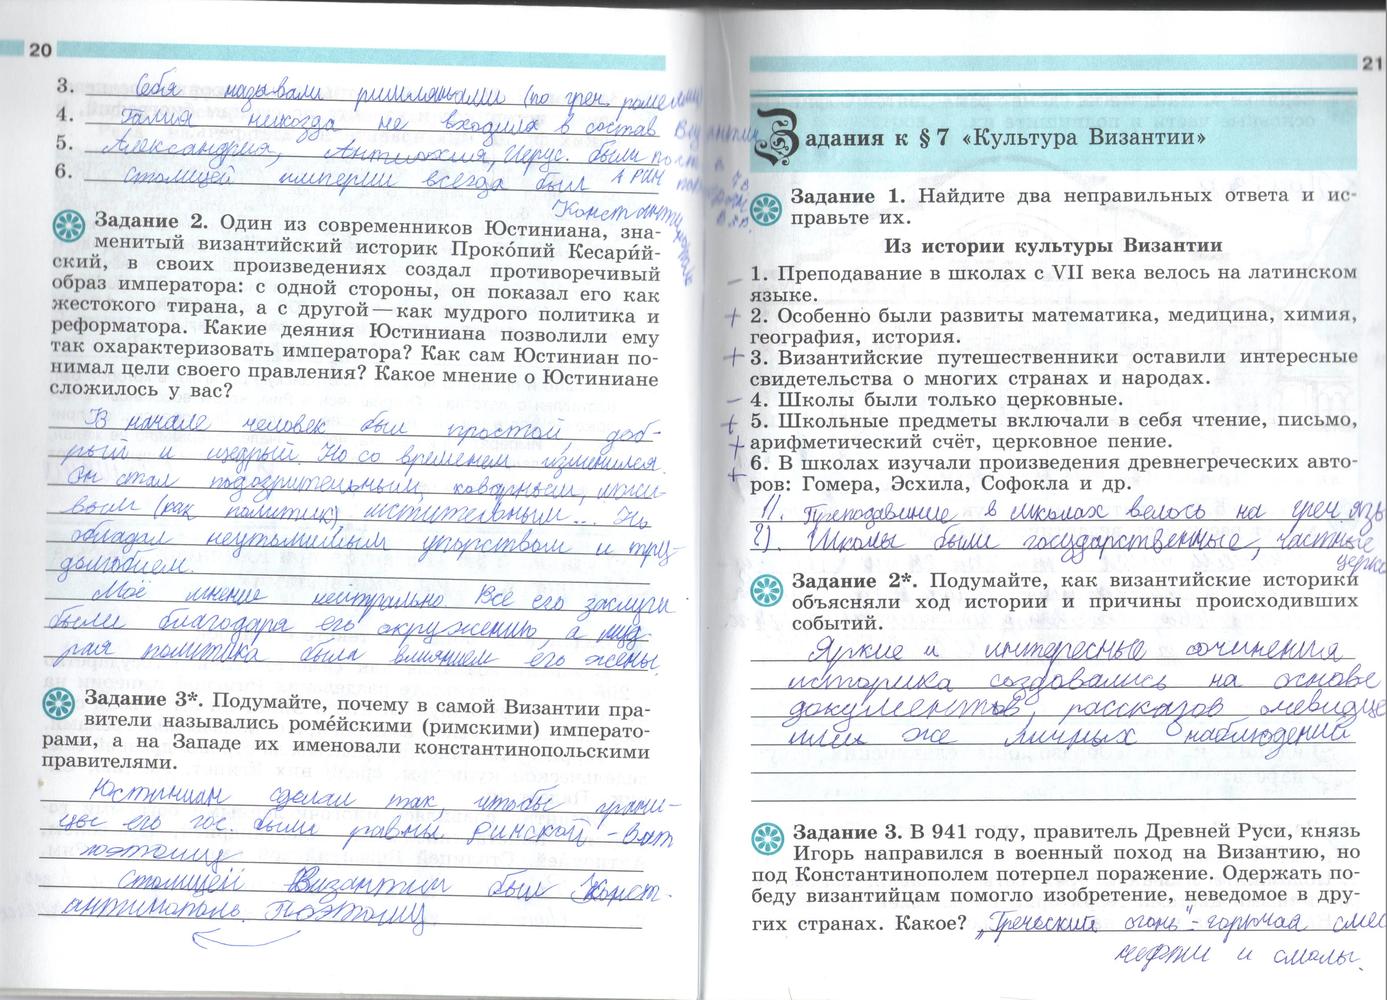 20
3. Себя называли римлянами (по греч. ромеями)
4. Галлия никогда не входила в состав Византии
5. Александрия, Антиохия, Иерус. были
6. столицей империи всегда был
Константинополь
Задание 2. Один из современников Юстиниана, зна-
менитый византийский историк Проко́пий Кесари́й-
ский, в своих произведениях создал противоречивый
образ императора: с одной стороны, он показал его как
жестокого тирана, а с другой — как мудрого политика и
реформатора. Какие деяния Юстиниана позволили ему
так охарактеризовать императора? Как сам Юстиниан по-
нимал цели своего правления? Какое мнение о Юстиниане
сложилось у вас?
В начале человек был простой, доб-
рый и щедрый. Но со временем изменился.
Он стал подозрительным, коварным, лжи-
вым (как политик) мстительным... Но
обладал неутомимым упорством и тру-
долюбием.
Моё мнение нейтрально. Все его заслуги
были благодаря его окружению, а муд-
рая политика была влиянием его жены.
Задание 3*. Подумайте, почему в самой Византии пра-
вители назывались роме́йскими (римскими) императо-
рами, а на Западе их именовали константинопольскими
правителями.
Юстиниан сделал так, чтобы грани-
цы его гос. были равны Римской - вот
поэтому
Столицей Византии был Конст-
антинополь. Поэтому
21
Задания к § 7 «Культура Византии»
Задание 1. Найдите два неправильных ответа и ис-
правьте их.
Из истории культуры Византии
– 1. Преподавание в школах с VII века велось на латинском
языке.
+ 2. Особенно были развиты математика, медицина, химия,
география, история.
+ 3. Византийские путешественники оставили интересные
свидетельства о многих странах и народах.
– 4. Школы были только церковные.
+ 5. Школьные предметы включали в себя чтение, письмо,
+ арифметический счёт, церковное пение.
6. В школах изучали произведения древнегреческих авто-
+ ров: Гомера, Эсхила, Софокла и др.
1). Преподавание в школах велось на греч. яз
2). Школы были государственные, частные
церко
Задание 2*. Подумайте, как византийские историки
объясняли ход истории и причины происходивших
событий.
Яркие и интересные сочинения
историка создавались на основе
документов, рассказов очевидце
или же личных наблюдений
Задание 3. В 941 году, правитель Древней Руси, князь
Игорь направился в военный поход на Византию, но
под Константинополем потерпел поражение. Одержать по-
беду византийцам помогло изобретение, неведомое в дру-
гих странах. Какое? „Греческий огонь" - горючая смес
нефти и смолы.